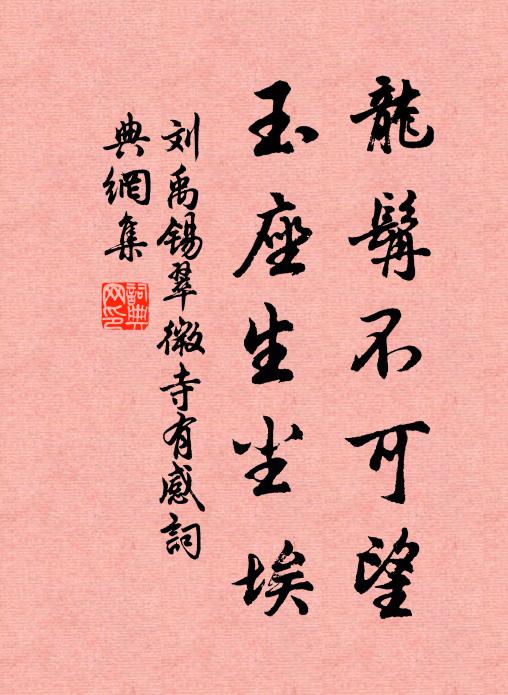 龍髯不可望
玉座生尘埃
刘禹锡翠微寺有感詞
典網集
詞典网印